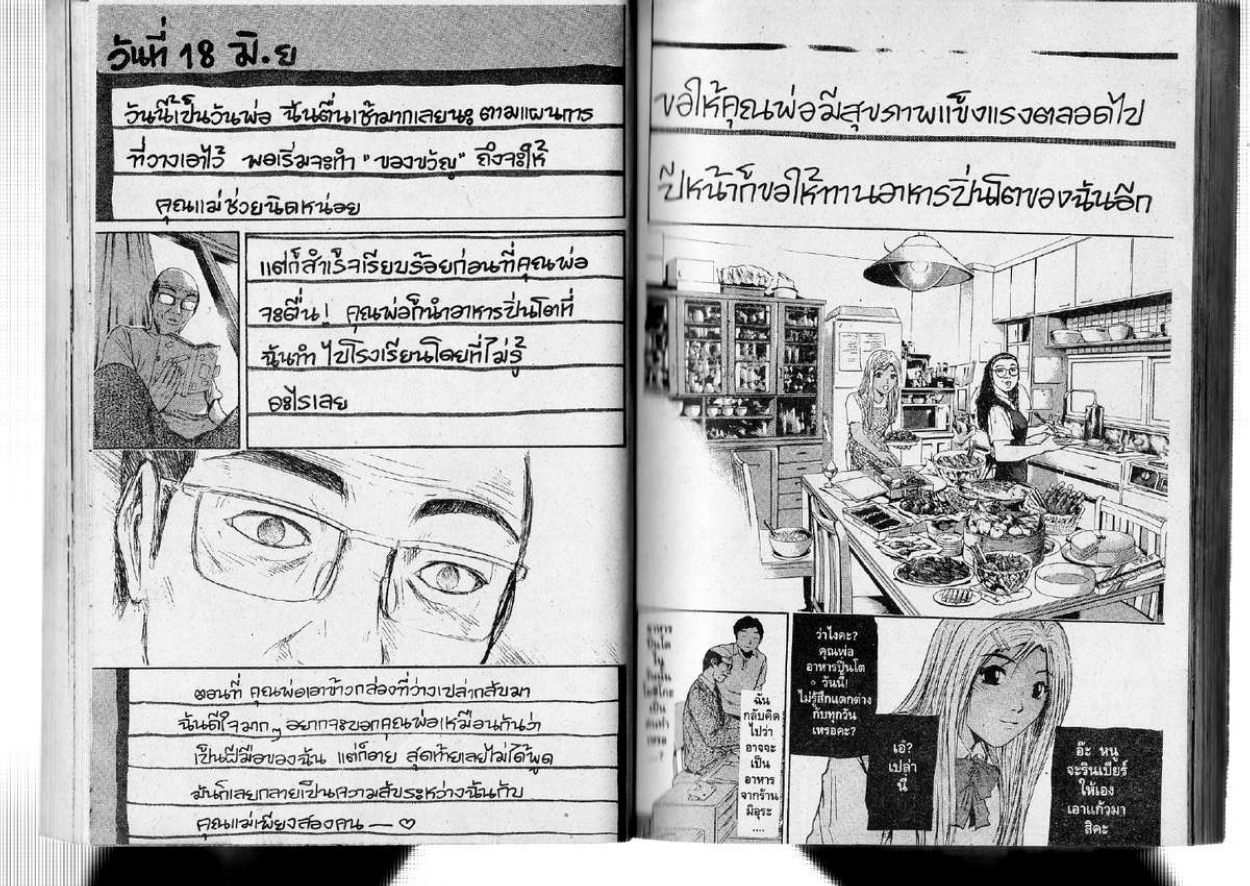 วันที่ 18 มิ.ย
วันนี้เป็นวันพ่อ ฉันตื่นเช้ามากเลยนะ ตามแผนการ
ที่วางเอาไว้ พอเริ่มจะทำ "ของขวัญ" ถึงจะให้
คุณแม่ช่วยนิดหน่อย
แต่ก็สำเร็จเรียบร้อยก่อนที่คุณพ่อ
จะตื่น! คุณพ่อก็นำอาหารปิ่นโตที่
ฉันทำ ไปโรงเรียนโดยที่ไม่รู้
อะไรเลย
ตอนที่ คุณพ่อเอาข้าวกล่องที่ว่างเปล่ากลับมา
ฉันดีใจมากๆ อยากจะบอกคุณพ่อเหมือนกันว่า
เป็นฝีมือของฉัน แต่ก็อาย สุดท้ายเลยไม่ได้พูด
มันก็เลยกลายเป็นความลับระหว่างฉันกับ
คุณแม่เพียงสองคน — ♡
ขอให้คุณพ่อมีสุขภาพแข็งแรงตลอดไป
ปีหน้าก็ขอให้ทานอาหารปิ่นโตของฉันอีก
อาหาร
ปิ่นโต
ใน
วันนั้น
เป็น
ฉัน
กลับคิด
ไปว่า
อาจจะ
เป็น
อาหาร
จากร้าน
มิอุระ
....
ว่าไงคะ?
คุณพ่อ
อาหารปิ่นโต
วันนี้!
ไม่รู้สึกแตกต่าง
กับทุกวัน
เหรอคะ?
เอ๋?
เปล่า
นี่
อ๊ะ หนู
จะรินเบียร์
ให้เอง
เอาแก้วมา
สิคะ